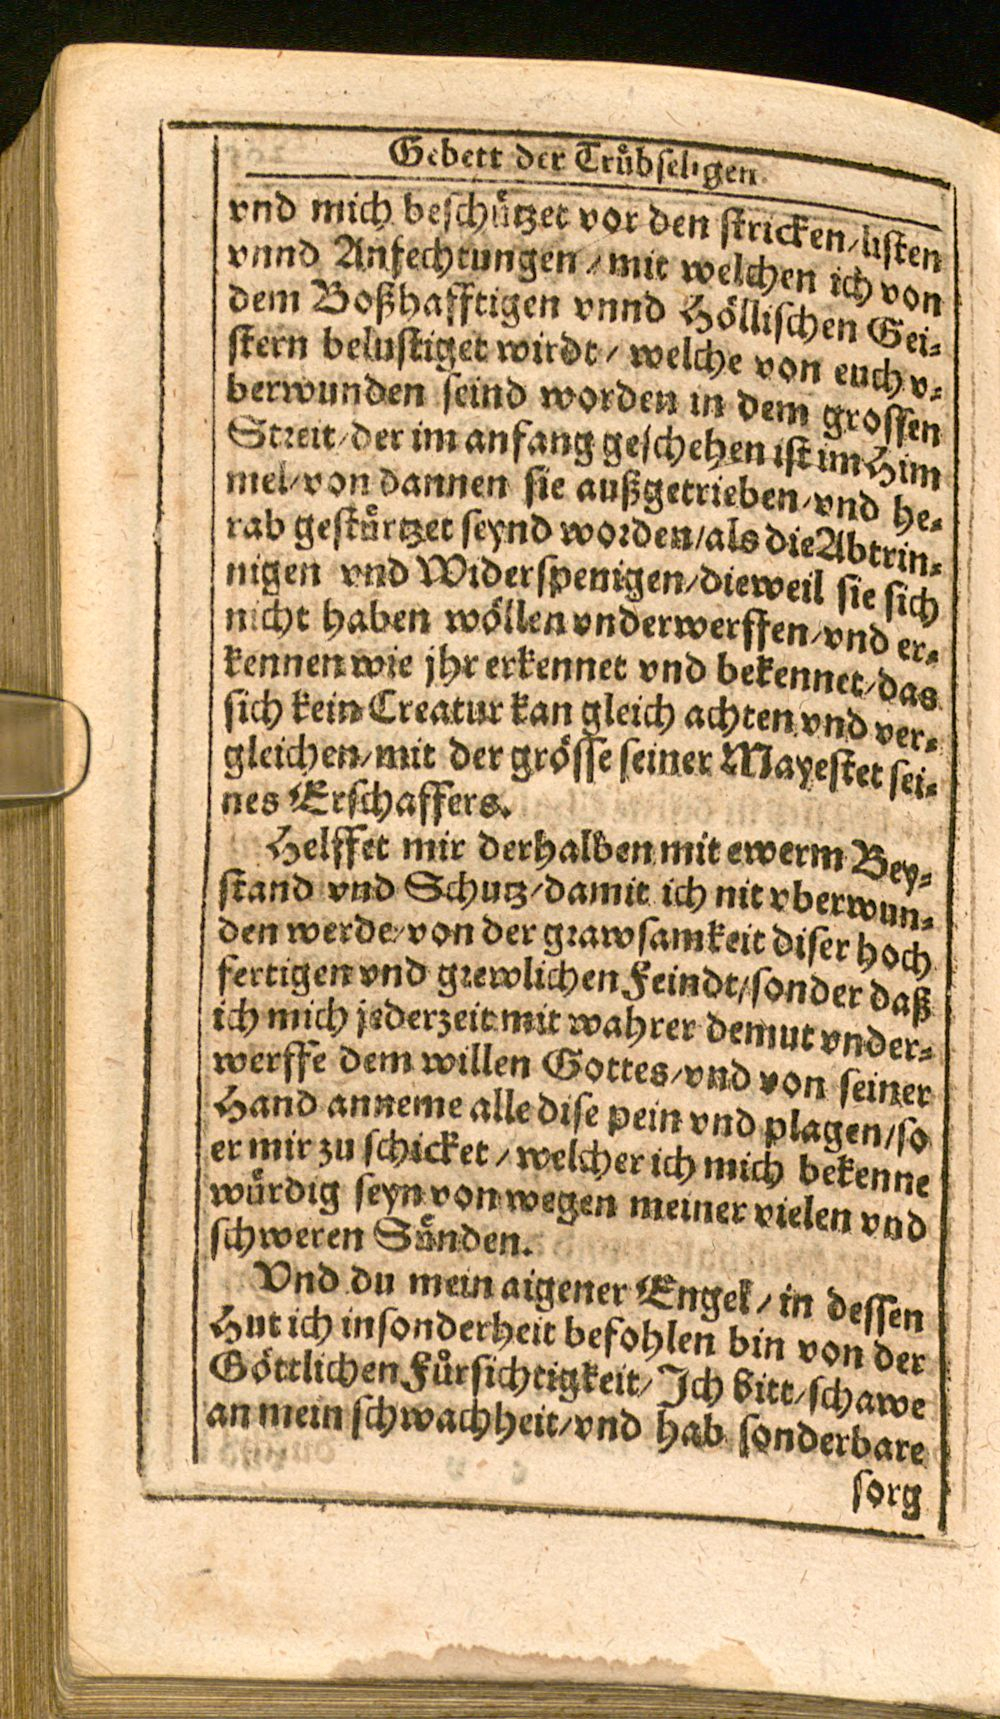 Gebett der Trůbseligen.
vnd mich beschůtzet vor den stricken/listen
vnnd Anfechtungen/mit welchen ich von
dem Boßhafftigen vnnd Höllischen Gei-
stern belustiget wirdt/welche von euch v-
berwunden seind worden in dem grossen
Streit/der im anfang geschehen ist im Him
mel/von dannen sie außgetrieben/vnd he-
rab gestůrtzet seynd worden/als die Abtrin-
nigen vnd Widerspenigen/dieweil sie sich
nicht haben wöllen vnderwerffen/vnd er-
kennen wie jhr erkennet vnd bekennet/das
sich kein Creatur kan gleich achten vnd ver-
gleichen/mit der grösse seiner Mayestet sei-
nes Erschaffers.
Helffet mir derhalben mit ewerm Bey-
stand vnd Schutz/damit ich nit vberwun-
den werde/von der grawsamkeit diser hoch
fertigen vnd grewlichen Feindt/sonder daß
ich mich jederzeit mit wahrer demut vnder-
werffe dem willen Gottes/vnd von seiner
Hand anneme alle dise pein vnd plagen/so
er mir zu schicket/welcher ich mich bekenne
wůrdig seyn von wegen meiner vielen vnd
schweren Sůnden.
Vnd du mein aigener Engel/in dessen
Hut ich insonderheit befohlen bin von der
Göttlichen Fůrsichtigkeit/Ich bitt/schawe
an mein schwachheit/vnd hab sonderbare
sorg